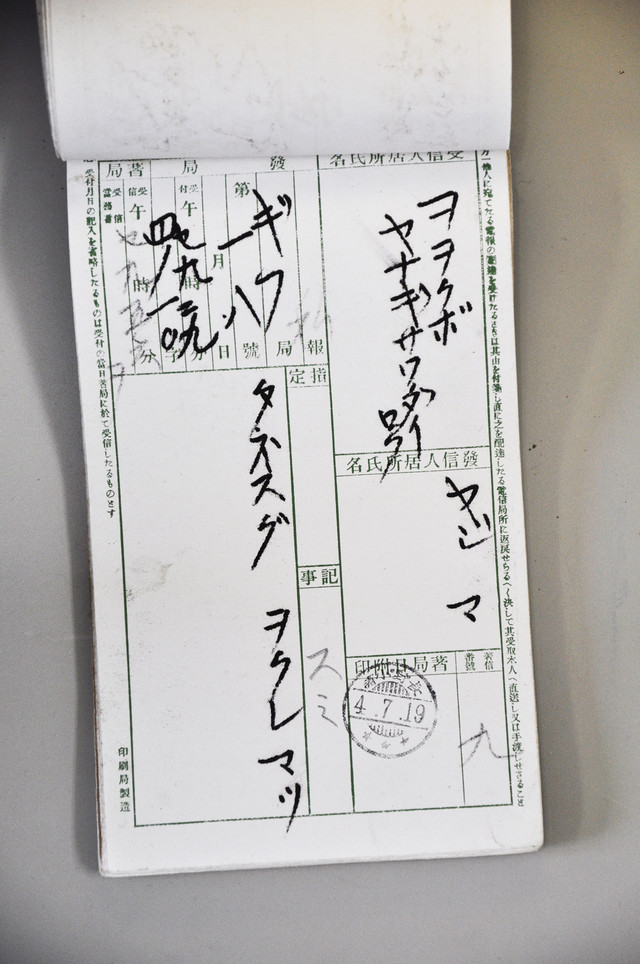 万一他人に宛てたる電報の配達を受けたるときは其由を付箋し直に之を配達したる電信局所に返戻せらるへく決して其受取本人へ直送し又は手渡しせさること
受信人居所氏名
ヲヲクボ
ヤナギサワ
發信人居所氏名
ヤジマ
装信番號
九
著局日附印
4.7.19
指定
記事
スミ
發局
著局
ギフ
報
局
第
號
一
月
日
受付
午
時
分
字
受信
午
時
分
タネスグ ヲクレ マツ
受付月日の記入を省略したるものは受付の當日著局に於て受信したるものとす
印刷局製造